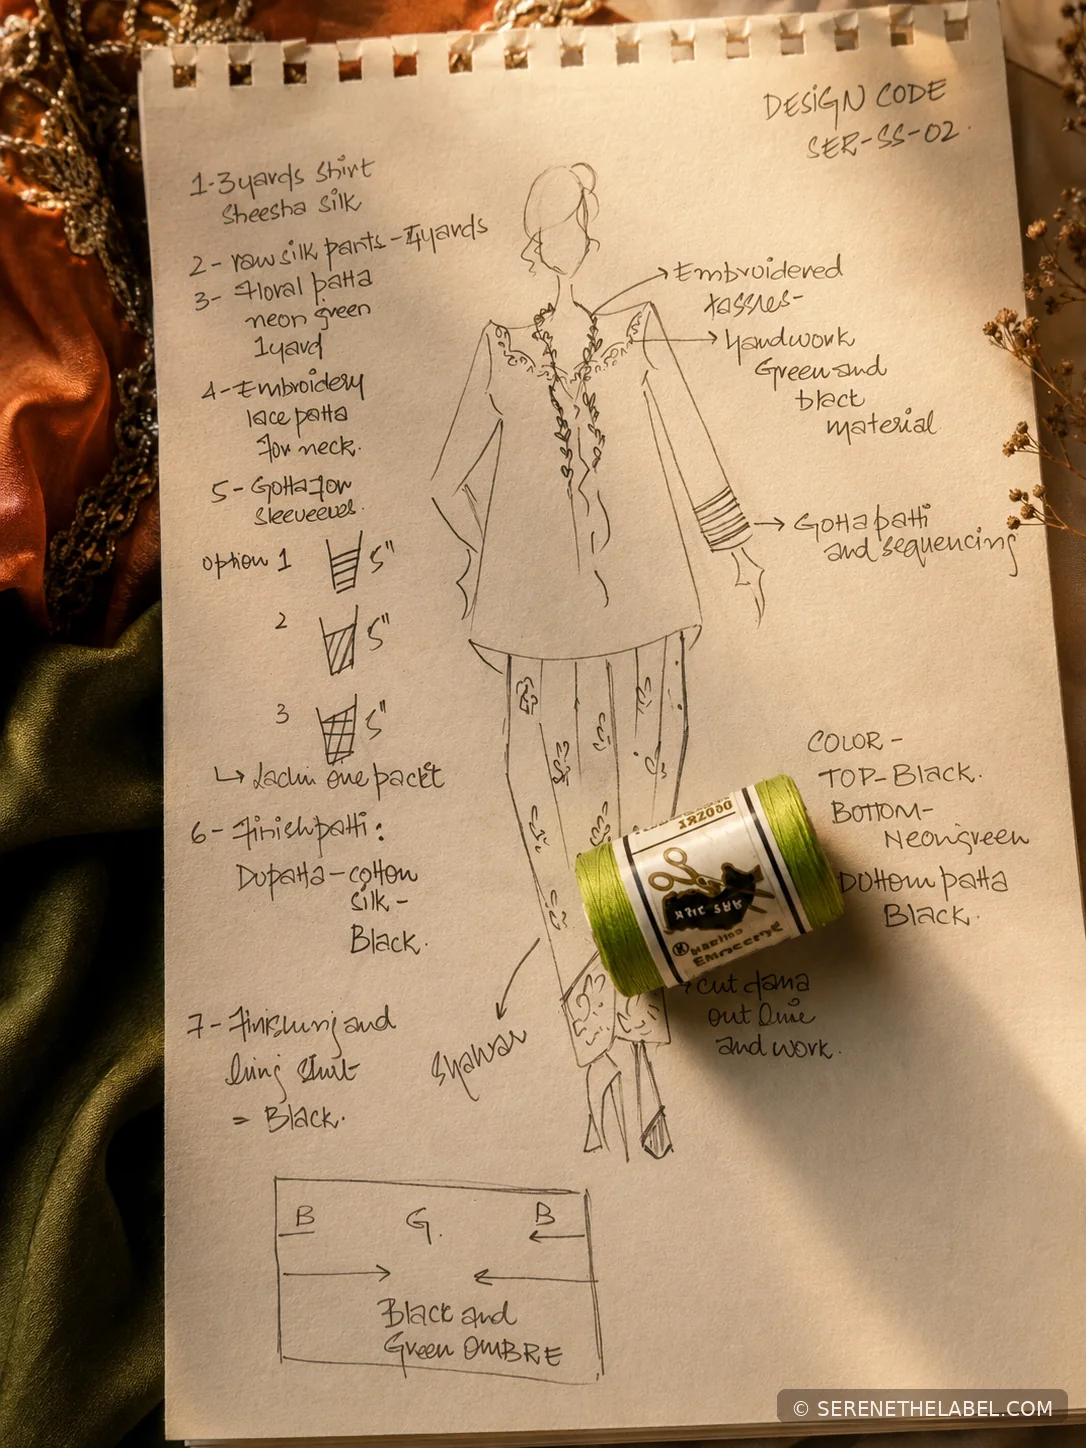 DESIGN CODE
SER-SS-02.
1-3yards shirt
Sheesha silk
2- raw silk pants - 4yards
3- Floral patta
neon green
1yard
4- Embroidery
lace patta
For neck.
5- Gotta For
Sleeveves.
option 1
5"
2
5"
3
5"
↳ one packt
6- Finish patti:
Dupatta - cotton
silk -
Black.
7- Finishing and
= Black.
Embroidered
Handwork
Green and
black
material
Gotta patti
and sequencing
COLOR -
TOP- Black.
BOTTOM-
Neon green
Bottom patta
Black.
cut
out
and work.
Shalwar
B
G.
B
Black and
Green OMBRE
© SERENETHELABEL.COM